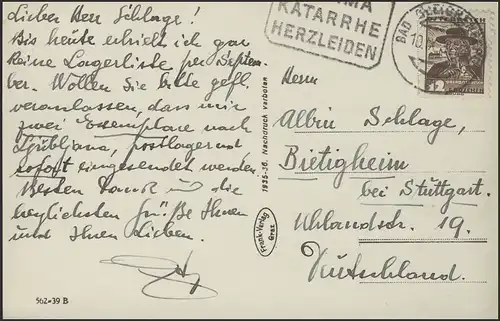 Lieber Herr Schlage!
Bis heute erhielt ich gar
keine Lagerliste per Septem-
ber. Wollen Sie bitte gefl.
veranlassen, dass mir
zwei Exemplare nach
Ljubljana, postlagernd
sofort eingesendet werden
Besten Dank und die
herzlichsten Grüße Ihnen
und Ihren Lieben.
562-39 B
1935-36. Nachdruck verboten
Frank-Verlag
Graz
KATARRHE
HERZLEIDEN
BAD GLEICH
10.
ÖSTERREICH
12
GROSCHEN
Herrn
Albin Schlage,
Bietigheim
bei Stuttgart.
Uhlandstr. 19.
Deutschland.